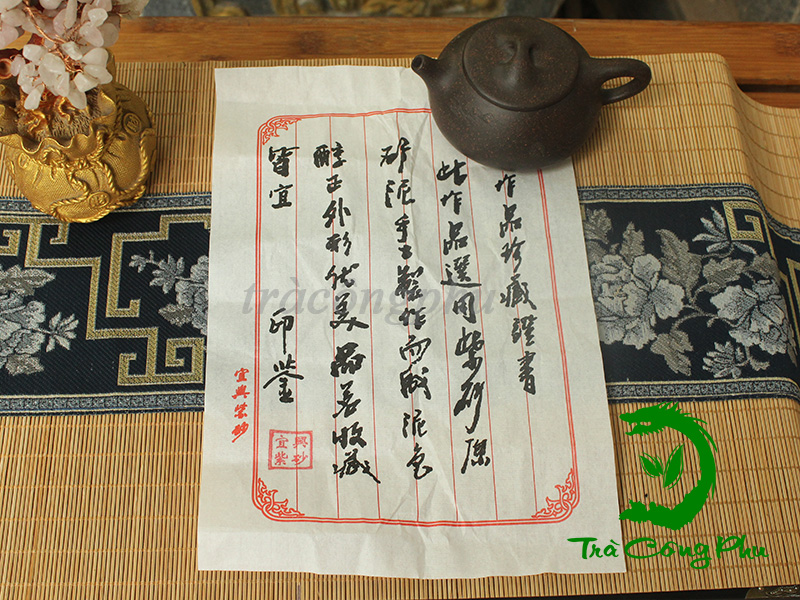 作品珍藏證書
此作品選用紫砂原
矿泥手工製作而成泥色
醇正外形优美品茗收藏
皆宜 印鉴
宜興
紫砂
宜興紫砂
tràcôngphu
Trà Công Phu